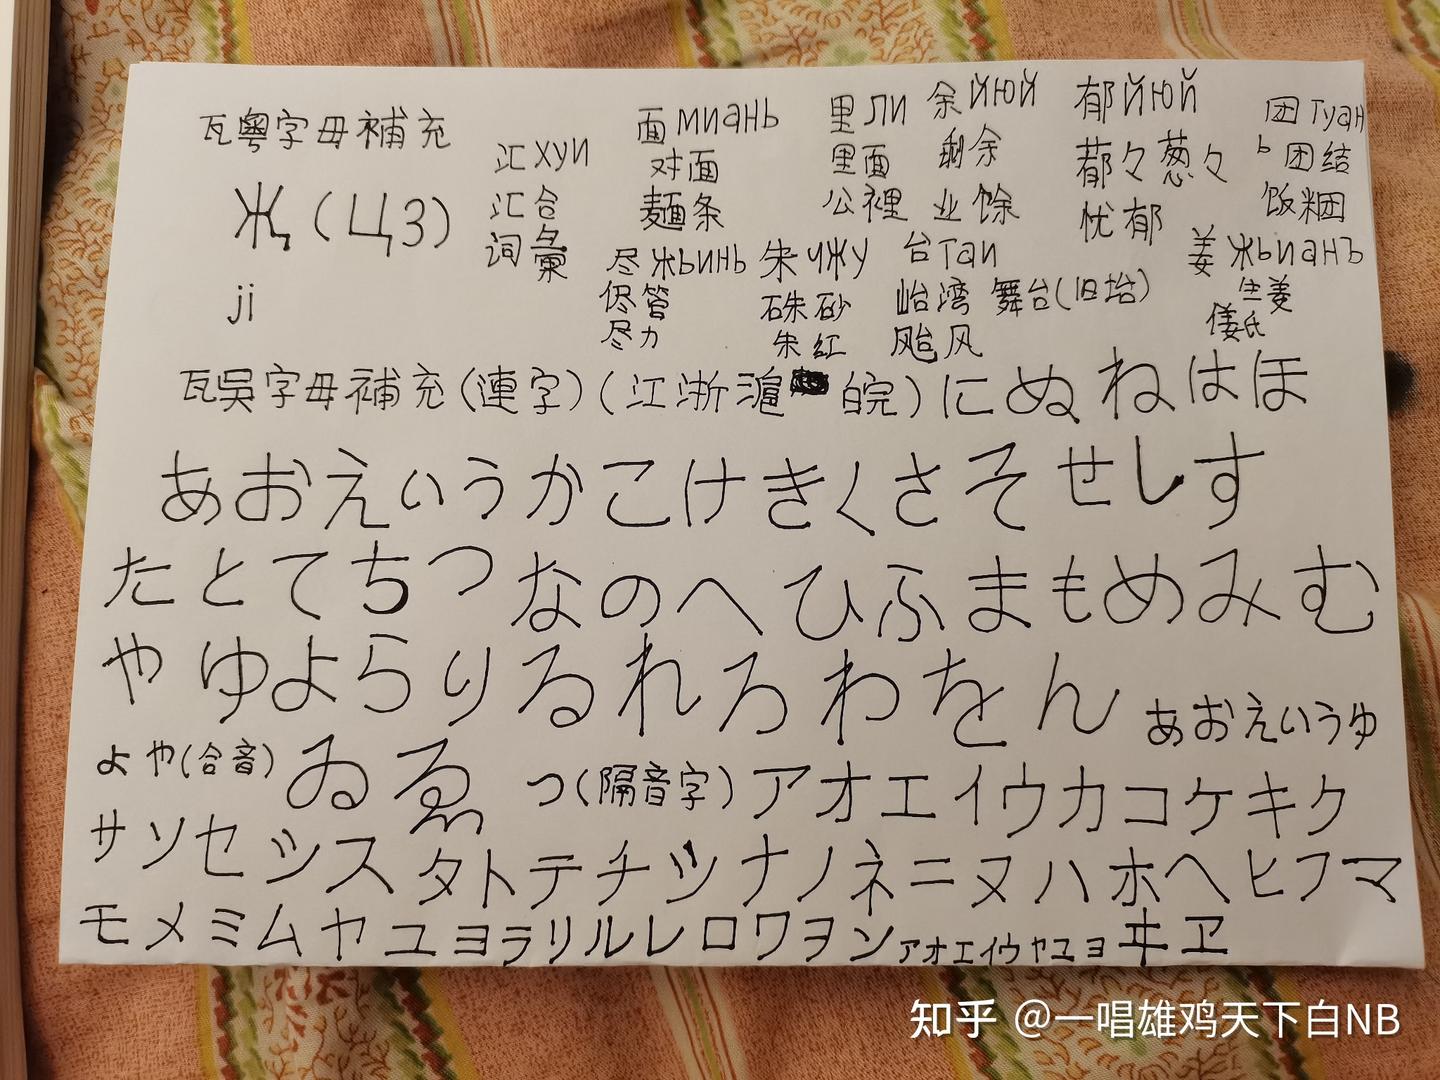 瓦粵字母補充
Җ(ЦЗ)
ji
汇хуи
汇合
词彙
面миань
对面
麵条
里ли
里面
公裡
余йюй
剩余
业馀
郁йюй
忧郁
团туань
团结
饭糰
尽жьинь
侭管
尽力
朱чжу
硃砂
朱红
台таи
舞台(旧坮)
颱风
姜жьианъ
生姜
瓦吳字母補充(連字)(江浙滬皖)にぬねはほ
あおえいうかこけきくさそせしす
たとてちつなのへひふまもめみむ
やゆよらりるれろわをんあおえいうゆ
よや(合音)ゐゑつ(隔音字)アオエイウカコケキク
サソセシスタトテチツナノネニヌハホヘヒフマ
モメミムヤユヨラリルレロワヲンアオエイウヤユヨヰヱ
知乎 @一唱雄鸡天下白NB